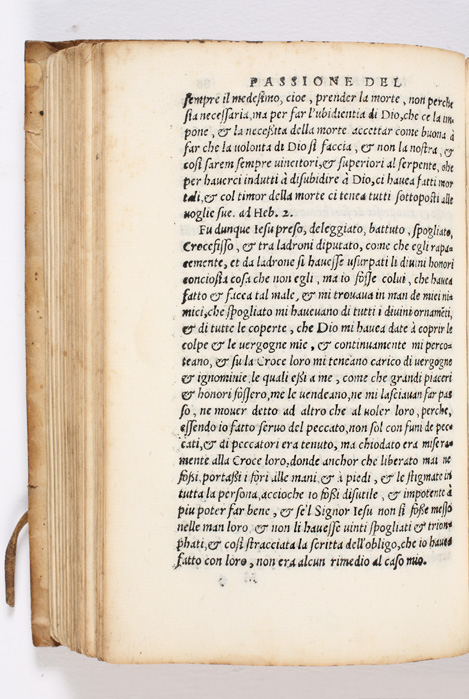 PASSIONE DEL
sempre il medesimo, cioe, prender la morte, non perche
sia necessaria, ma per far l'ubidientia di Dio, che ce la im
pone, & la necesita della morte accettar come buona à
far che la uolonta di Dio si faccia, & non la nostra, &
cosi sarem sempre uincitori, & superiori al serpente, che
per hauerci indutti à disubidire à Dio, ci hauea fatti mor
tali, & col timor della morte ci tenea tutti sottoposti alle
uoglie sue. ad Heb. 2.
Fu dunque Iesu preso, deleggiato, battuto, spogliato,
Crocefisso, & tra ladroni diputato, come che egli rapa-
cemente, et da ladrone si hauesse usurpati li diuini honori
conciosia cosa che non egli, ma io fosse colui, che hauea
fatto & facea tal male, & mi trouaua in man de miei ni-
mici, che spogliato mi haueuano di tutti i diuini ornamēti,
& di tutte le coperte, che Dio mi hauea date à coprir le
colpe & le uergogne mie, & continuamente mi perco-
teano, & su la Croce loro mi teneano carico di uergogne
& ignominie le quali eßi a me, come che grandi piaceri
& honori fossero, me le uendeano, ne mi lasciauan far pas
so, ne mouer detto ad altro che al uoler loro, perche,
essendo io fatto seruo del peccato, non sol con funi de pec
cati, & di peccatori era tenuto, ma chiodato era misera-
mente alla Croce loro, donde anchor che liberato mai ne
foßi, portaßi i fori alle mani, & à piedi, & le stigmate in
tutta la persona, accioche io foßi disutile, & impotente à
piu poter far bene, & se'l Signor Iesu non si fosse messo
nelle man loro & non li hauesse uinti spogliati & trion
phati, & cosi stracciata la scritta dell'obligo, che io hauea
fatto con loro, non era alcun rimedio al caso mio.